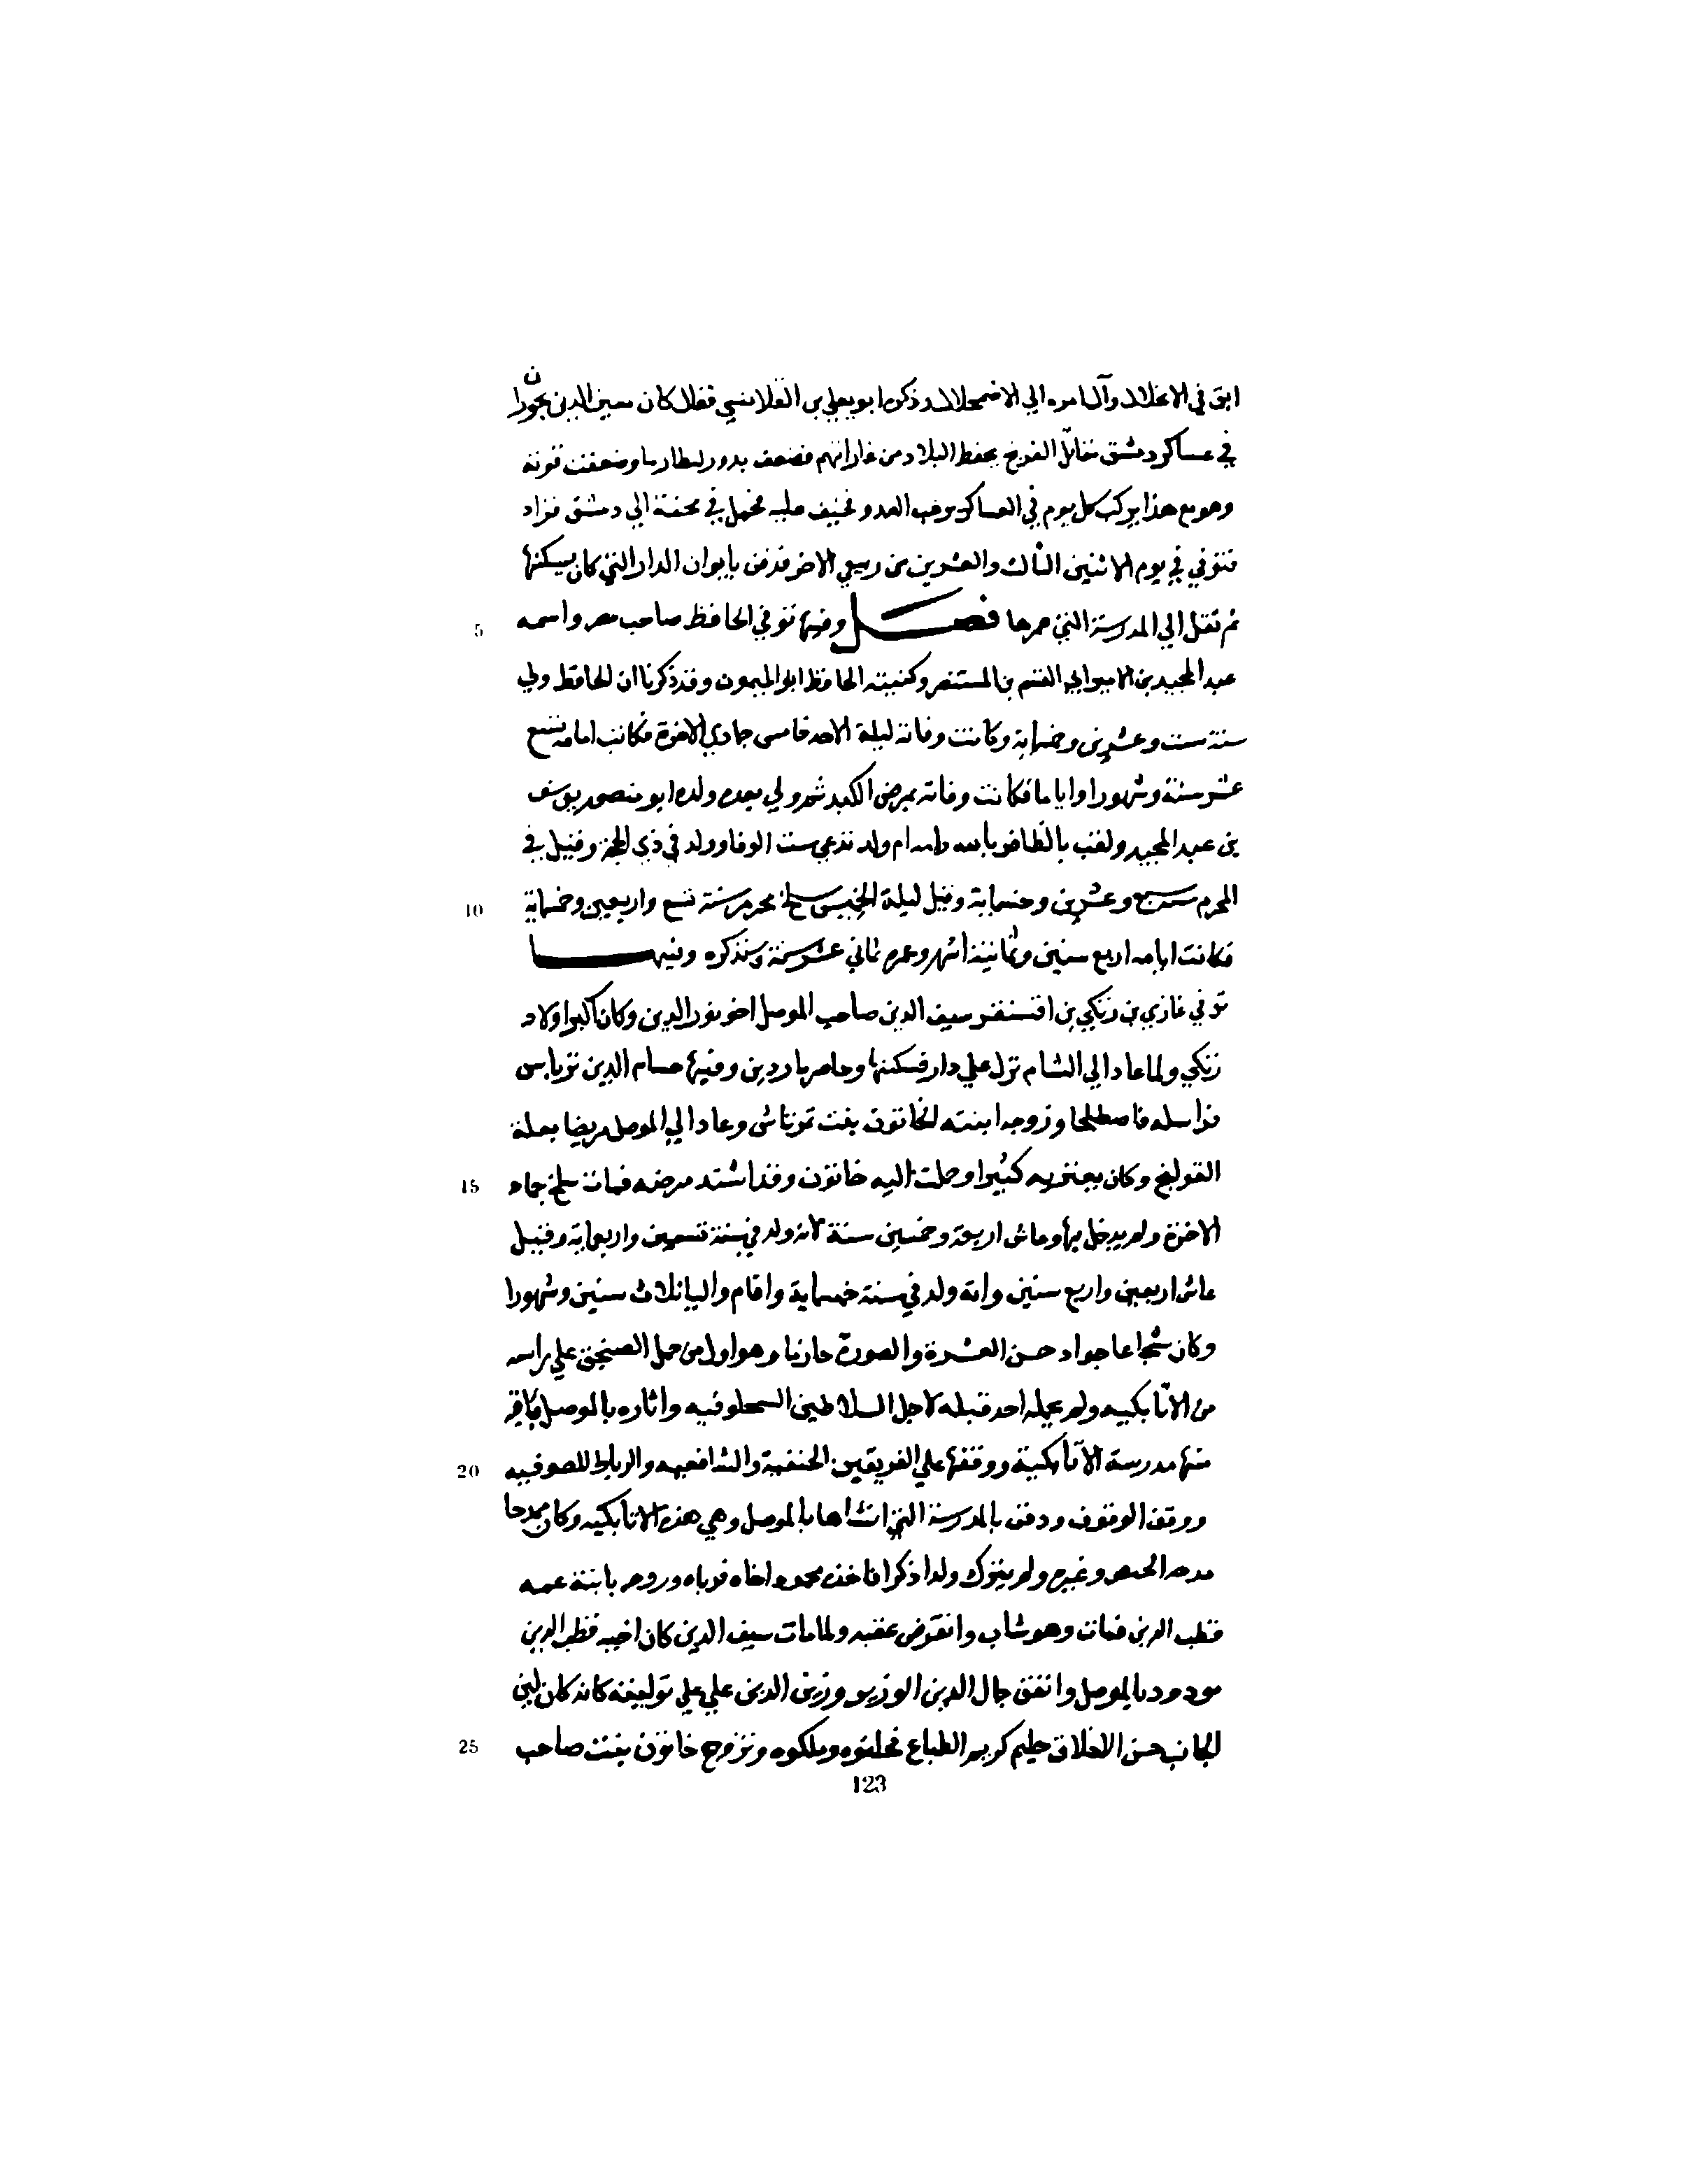 ابق في الانحلال وآل امره الي الاضمحلال وذكره ابو يعلي بن القلانسي فقال كان معين الدين بحوران
في عساكر دمشق يقاتل الفرنج بحفظ البلاد من غاراتهم فضعف وضعفت قوته
وهو مع هذا يركب كل يوم في العساكر يرهب العدو فخيف عليه فحمل في محفة الي دمشق فزاد
فتوفي في يوم الاثنين الثالث والعشرين من ربيع الاخر فدفن بايوان الدار التي كان يسكنها
ثم نقل الي المدرسة التي عمرها فصل وفيها توفي الحافظ صاحب مصر واسمه 5
عبد المجيد بن الامير ابي القسم بن المستنصر وكنيته الحافظ ابو الميمون وقد ذكرنا ان الحافظ ولي
سنة ست وعشرين وخمسماية وكانت وفاته ليلة الاحد خامس جمادي الاخرة فكانت امامته تسع
عشر سنة وشهورا واياما فكانت وفاته بمرض الكبد ثم ولي بعده ولده ابو منصور يوسف
بن عبد المجيد ولقب بالظافر بالله وامه ام ولد تدعي ست الوفا وولد في ذي الحجة وقيل في
المحرم سبع وعشرين وخمسماية وقيل ليلة الخميس سلخ محرم سنة تسع واربعين وخمسماية 10
فكانت ايامه اربع سنين وثمانية اشهر وعمره ثماني عشر سنة وسنذكره وفيها
توفي غازي بن زنكي بن اقسنقر سيف الدين صاحب الموصل اخو نور الدين وكان اكبر اولاد
زنكي ولما عاد الي الشام نزل علي دارا فسكنها وحاصر ماردين وفيها حسام الدين تمرتاش
فراسله فاصطلحا وزوجه ابنته الخاتون بنت تمرتاش وعاد الي الموصل مريضا بعلة
القولنج وكان يعتريه كثيرا وحملت اليه خاتون وقد اشتد مرضه فمات سلخ جماد 15
الاخرة ولم يدخل بها وعاش اربعة وخمسين سنة لانه ولد في سنة تسعين واربعماية وقيل
عاش اربعين واربع سنين وانه ولد في سنة خمسماية واقام واليا ثلاث سنين وشهورا
وكان شجاعا جواد حسن العشرة والصورة حازما وهو اول من حمل الصنجق علي راسه
من الاتابكيه ولم يحمله احد قبله لاجل السلاطين السلجوقيه واثاره بالموصل باقية
منها مدرسة الاتابكية ووقفها علي الفريقين الحنفية والشافعيه والرباط للصوفييه 20
ووقف الوقوف ودفن بالمدرسة التي انشاها بالموصل وهي هذه الاتابكيه وكان ممدحا
مدحه الحيص وغيره ولم يترك ولدا ذكرا فاخذه محمود اخاه فرباه وزوجه بابنة عمه
قطب الدين فمات وهو شاب وانقرض عقبه ولما مات سيف الدين كان اخيه قطب الدين
مودود بالموصل واتفق جمال الدين الوزير وزين الدين علي علي توليته كانه كان لين
الجانب حسن الاخلاق حليم كريم الطباع فحلفوه وملكوه وتزوج خاتون بنت صاحب 25
123